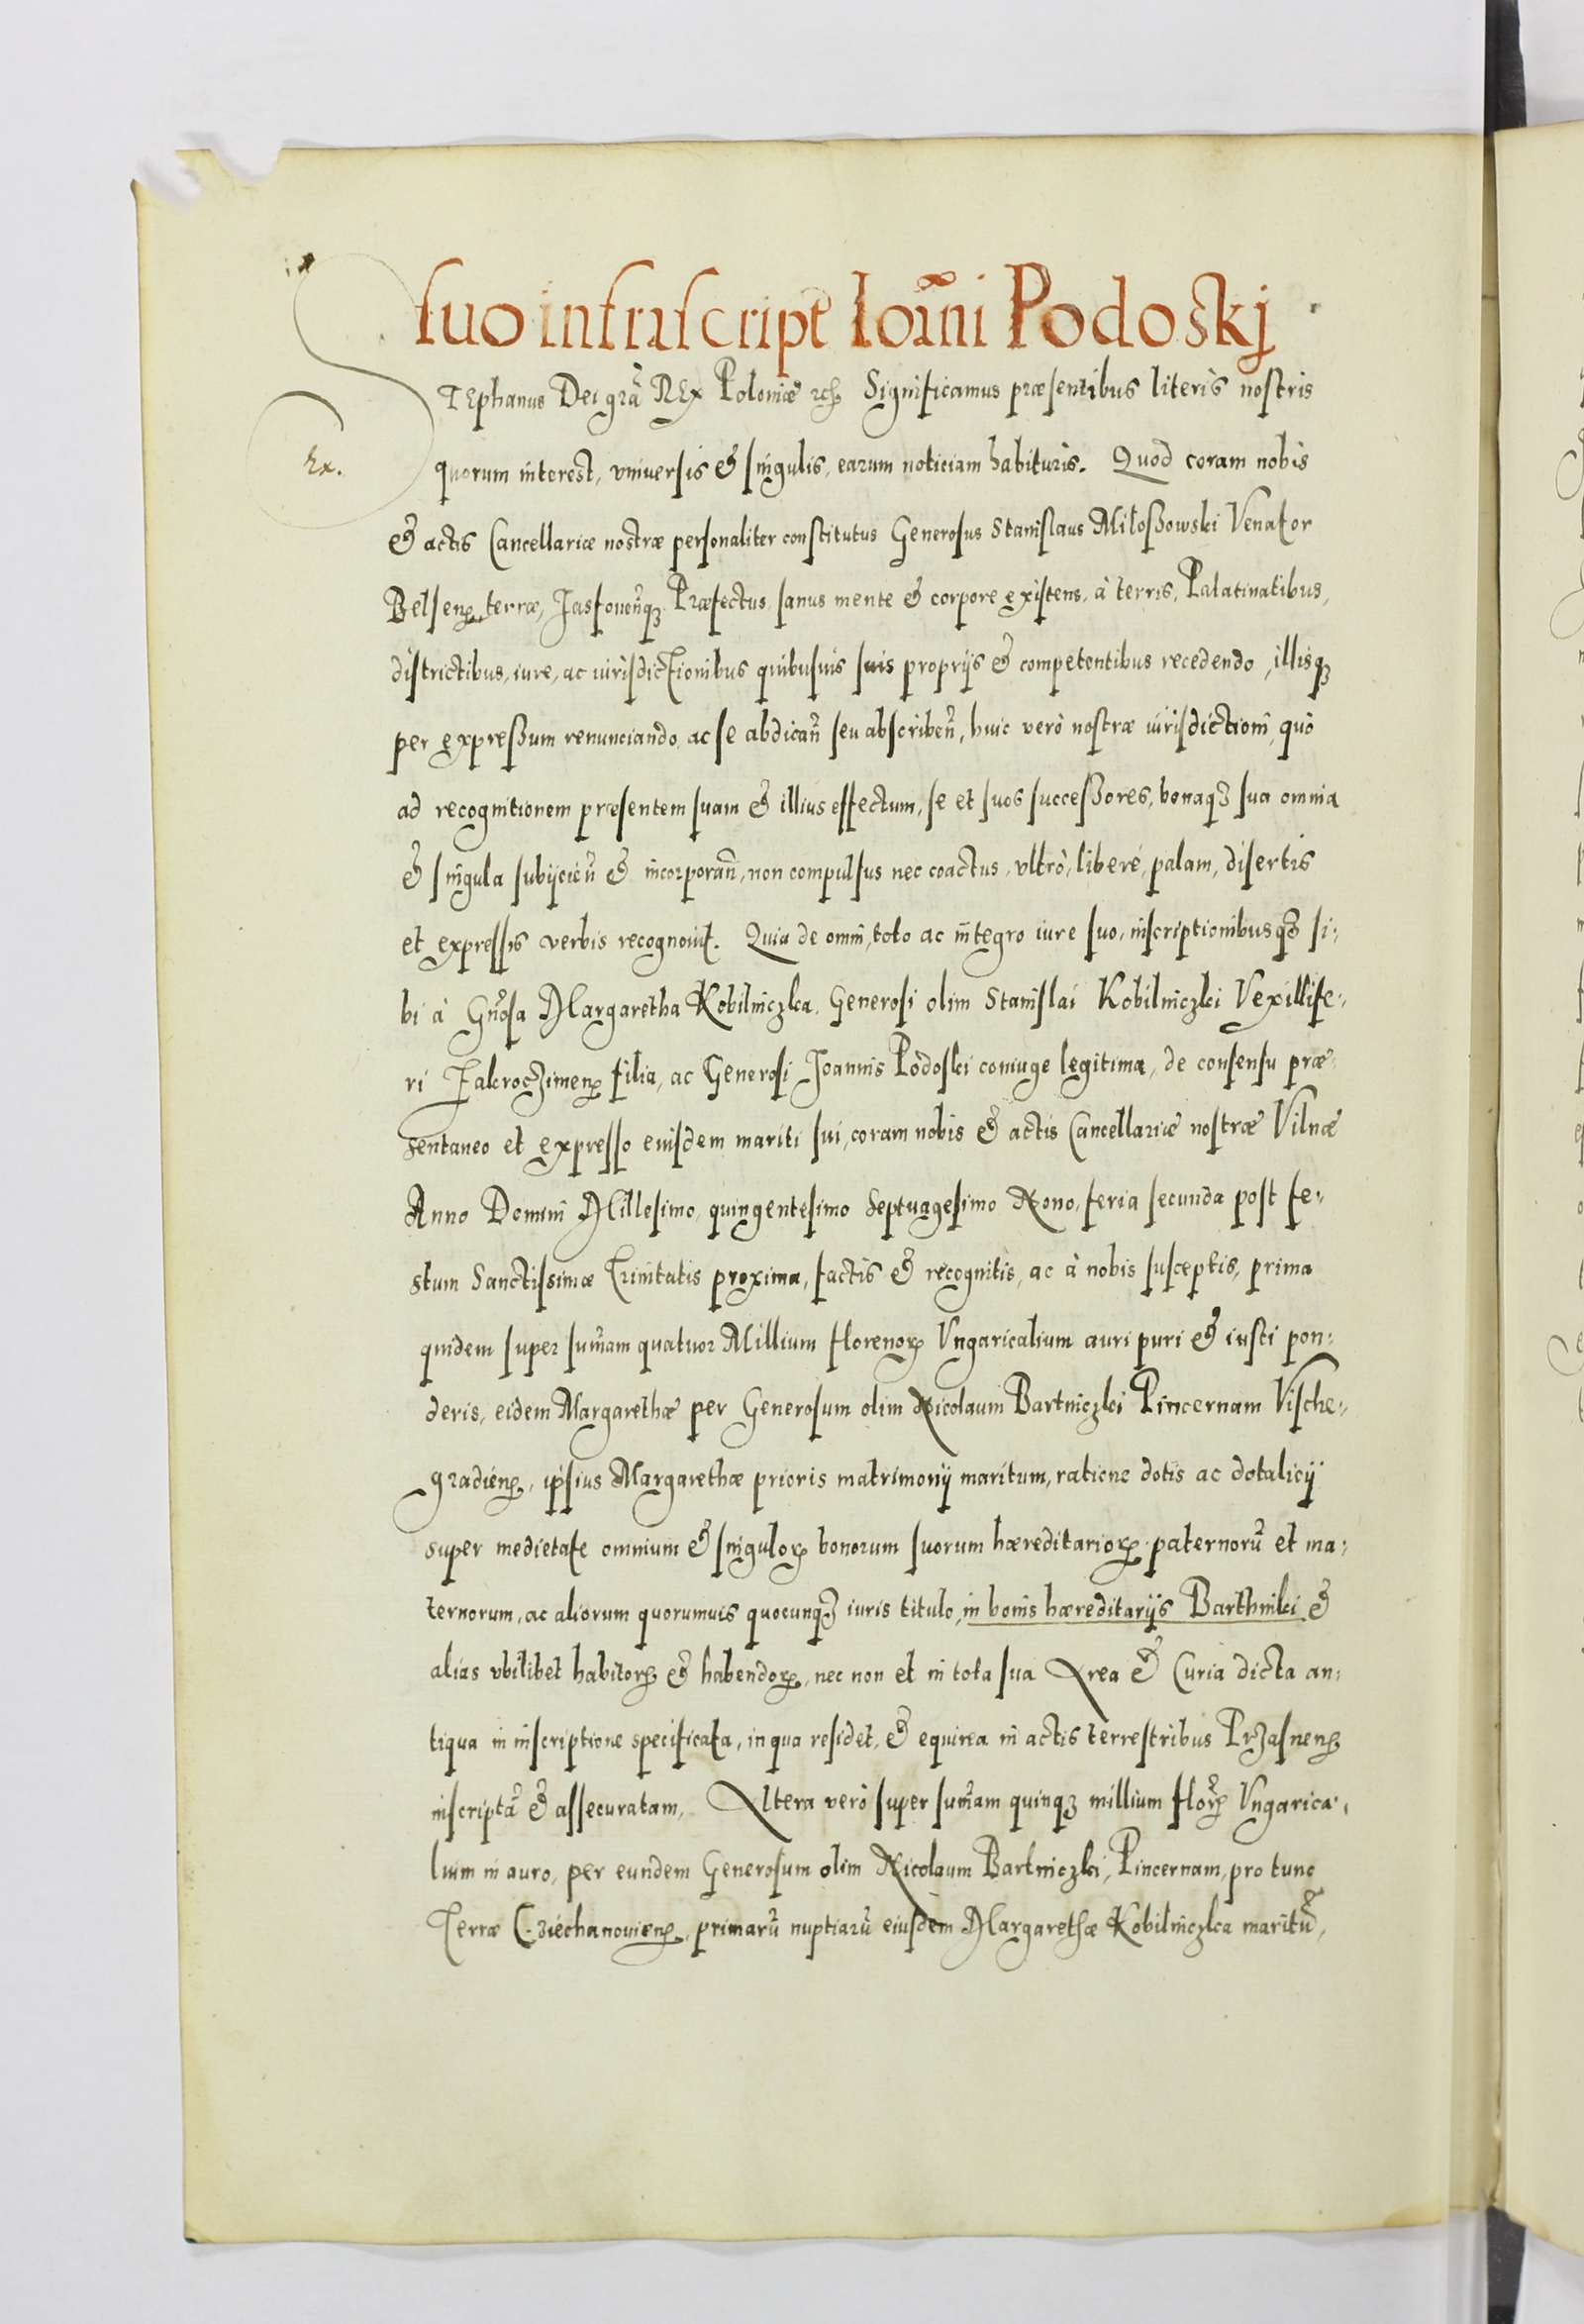 suo infrascript Ioãni Podoskj
STEphanus Dei grã REx Poloniæ etc. Significamus præsentibus literis nostris
Ex.
quorum interest, vniuersis & singulis, earum noticiam habituris. Quod coram nobis
& actis Cancellariæ nostræ personaliter constitutus Generosus Stanislaus Miloßowski Venator
Belsenꝭ terræ, Præfectus, sanus mente & corpore existens, à terris, Palatinatibus,
districtibus, iure, ac iurisdictionibus quibusuis suis proprijs & competentibus recedendo, illisqꝫ
per expreßum renunciando, ac se abdicañ seu abscribeñ, huic verò nostræ iurisdictioni, quò
ad recognitionem præsentem suam & illius effectum, se et suos succeßores, bonaqꝫ sua omnia
& singula subijcieñ & incorporañ, non compulsus nec coactus, vltrò, liberé, palam, disertis
et expressis verbis recognouit. Quia de omni, toto ac integro iure suo, inscriptionibusqꝫ si:
bi à Gñosa Margaretha Kobilniczka, Generosi olim Stanislai Kobilniczki Vexillife:
ri Zakrocziemenꝭ filia, ac Generosi Joannis Podoski coniuge legitima, de consensu præ:
sentaneo et expresso eiusdem mariti sui, coram nobis & actis Cancellariæ nostræ Vilnæ
Anno Domini Millesimo, quingentesimo Septuagesimo Nono, feria secunda post fe:
stum Sanctissimæ Trinitatis proxima, factis & recognitis, ac à nobis susceptis, prima
quidem super sum̃am quatuor Millium florenoꝝ Vngaricalium auri puri & iusti pon:
deris, eidem Margarethæ per Generosum olim Nicolaum Bartniczki Pincernam Vische:
gradienꝭ, ipsius Margarethæ prioris matrimonij maritum, ratione dotis ac dotalicij
super medietate omnium & singuloꝝ bonorum suorum hæreditarioꝝ paternorũ et ma:
ternorum, ac aliorum quorumuis quocunqꝫ iuris titulo, in bonis hæreditarijs Barthniki &
alias vbilibet habitoꝝ & habendoꝝ, nec non et in tota sua Area & Curia dicta an:
tiqua in inscriptione specificata, in qua residet, & equirea in actis terrestribus Przasnenꝭ
inscriptã & assecuratam, Altera verò super sum̃am quinqꝫ millium floꝝ Vngarica:
lium in auro, per eundem Generosum olim Nicolaum Bartniczki, Pincernam, pro tunc
Terræ Cziechanouienꝭ, primarũ nuptiarũ eiusdem Margarethæ Kobilniczka maritũ,